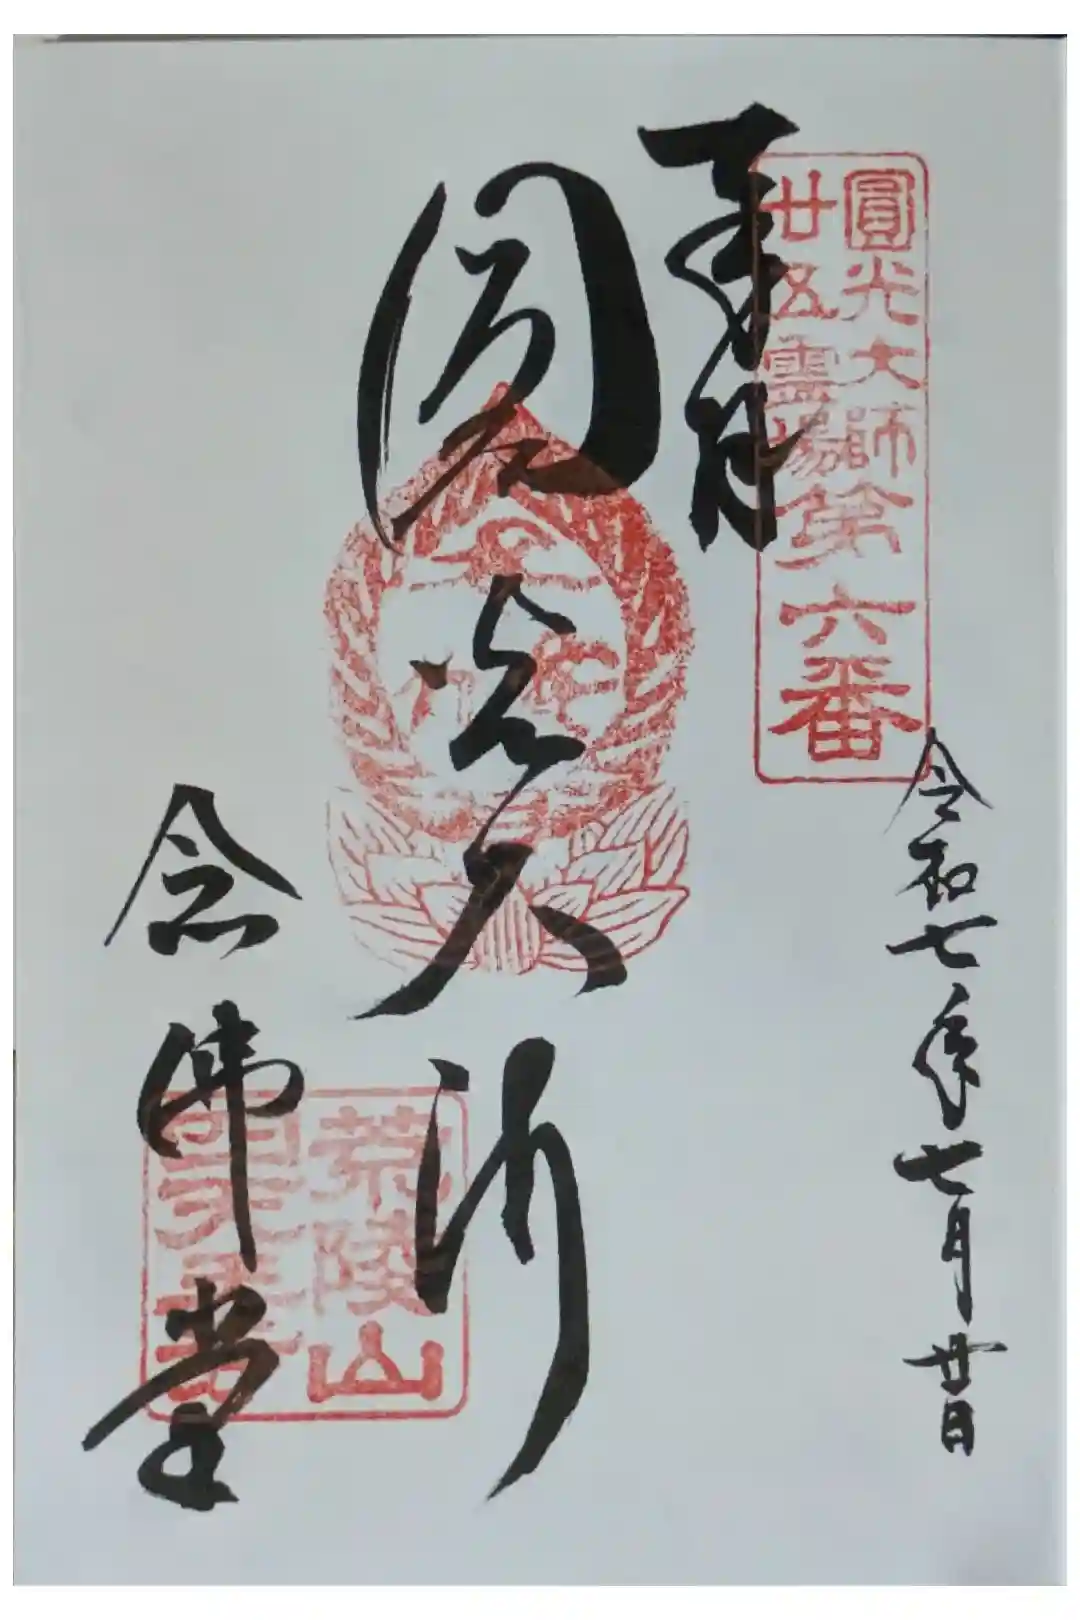 圓光大師
廿五霊場第六番
奉拜
令和七年七月廿日
圓光大師
荒陵山
四天王寺
念佛堂